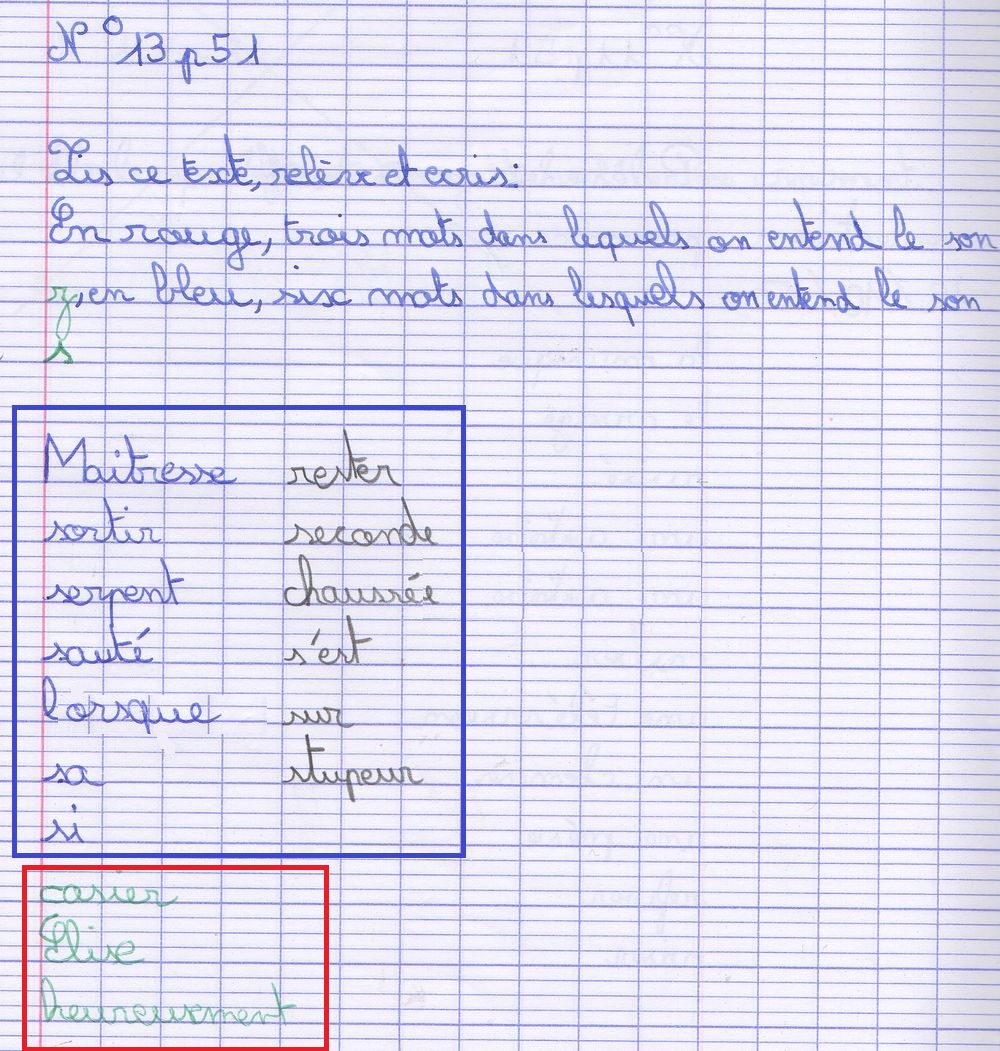 N° 13 p 51
Lis ce texte, relève et ecris:
En rouge, trois mots dans lequels on entend le son
z, en bleu, six mots dans lesquels on entend le son
s
Maitresse rester
sortir seconde
serpent chaussée
sauté s'est
lorsque sur
sa stupeur
si
casier
Élise
heureusement